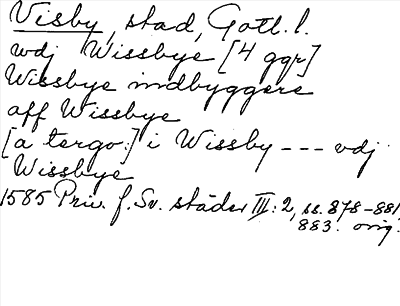 Visby, stad, Gotl. l.
wdj Wissbye [4 ggr]
Wissbye indbyggere
aff Wissbye
[a tergo:] i Wissby --- vdj
Wissbye
1585 Priv. f. Sv. städer III: 2, ss. 878-881,
883. orig.